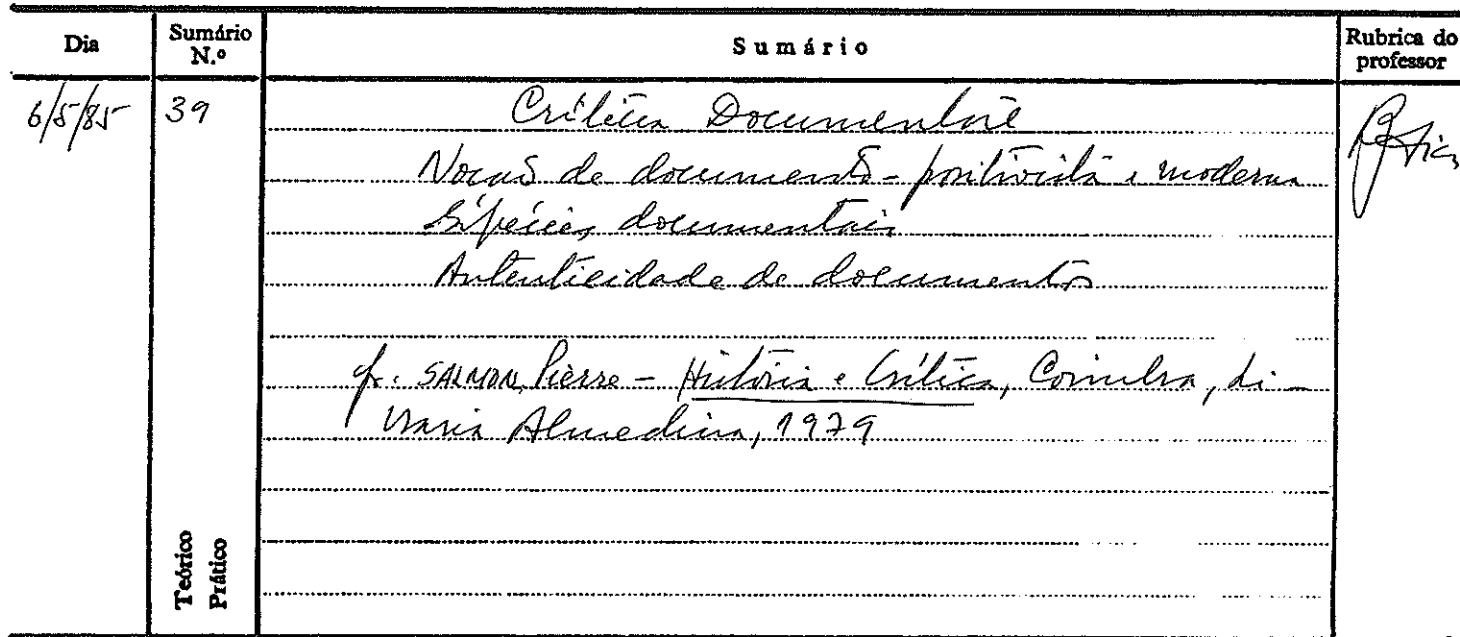 Dia
Sumário N.º
Sumário
Rubrica do professor
6/5/85
39
Crítica Documental
Noção de documento - positivista e moderna
Espécies documentais
Autenticidade de documentos
cf. SALMON, Pierre - História e Crítica, Coimbra, Li-
vraria Almedina, 1979
Teórico
Prático